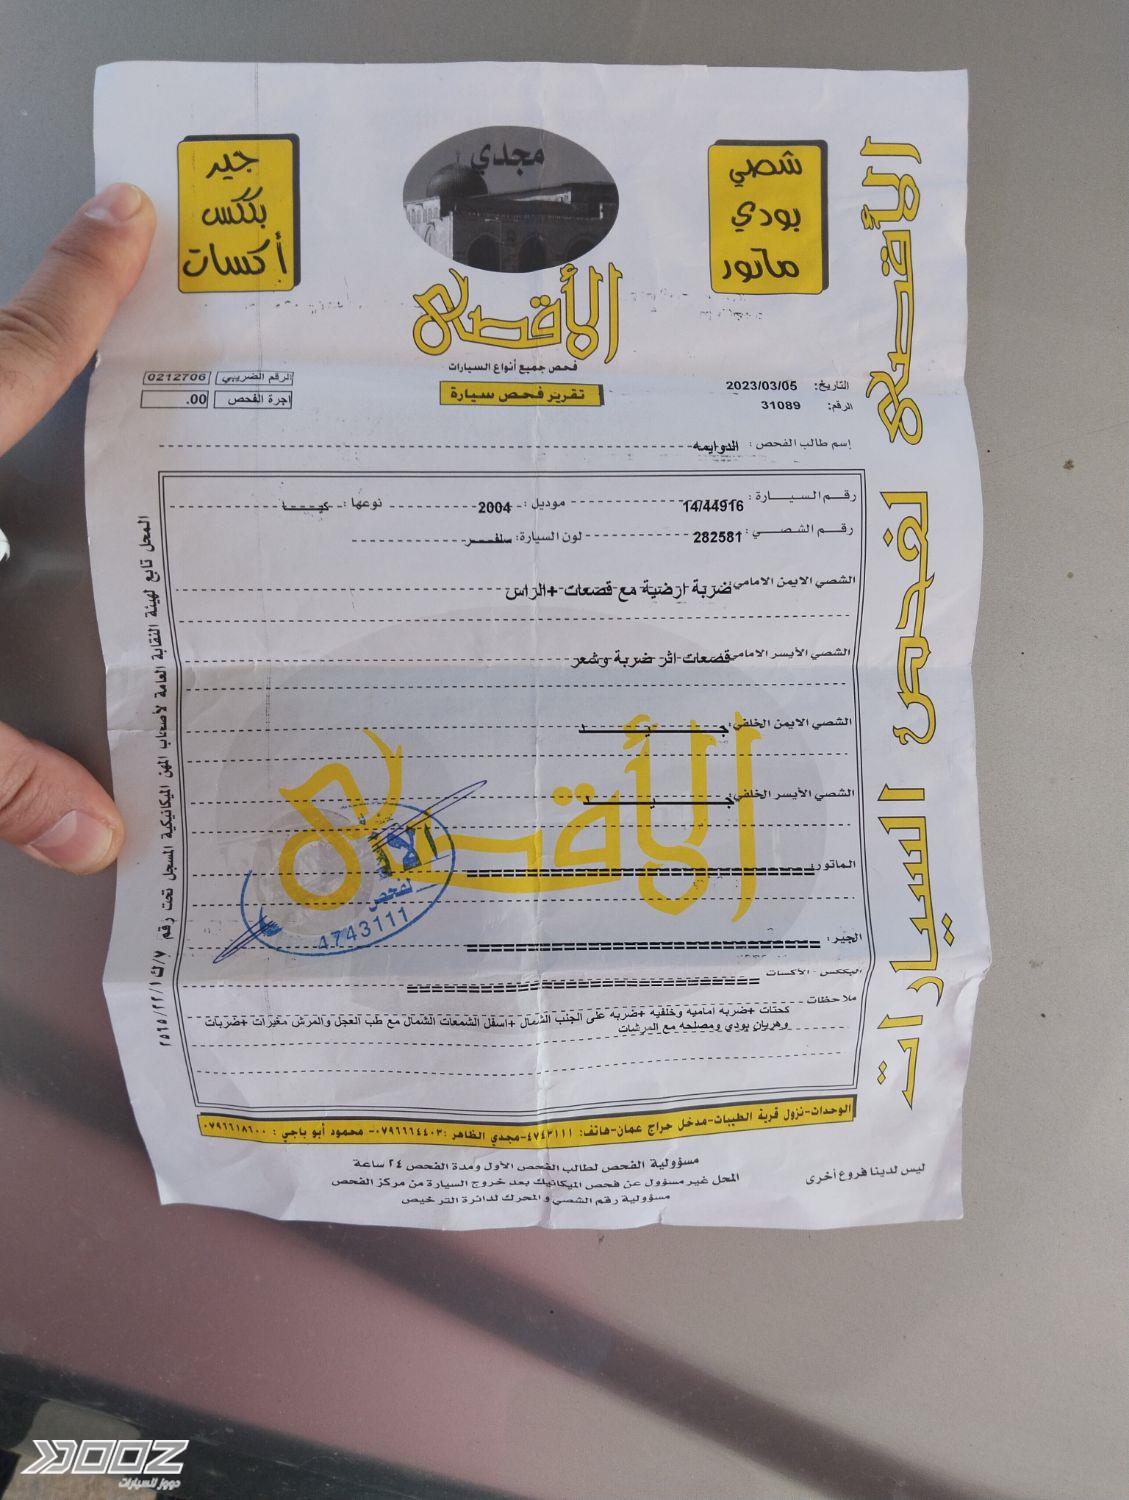 شصي
بودي
ماتور
مجدي
جير
بككس
أكسات
الأقصى
فحص جميع أنواع السيارات
تقرير فحص سيارة
التاريخ: 2023/03/05
الرقم: 31089
الرقم الضريبي 0212706
اجرة الفحص .00
إسم طالب الفحص : الدوايمه
رقم السيارة : 14/44916 موديل : 2004 نوعها : كيا
رقم الشصي : 282581 لون السيارة: سلفر
الشصي الايمن الامامي: ضربة ارضية مع قصعات +الراس
الشصي الأيسر الامامي: قصعات اثر ضربة وشعر
الشصي الايمن الخلفي: جيد
الشصي الأيسر الخلفي: جيد
الماتور:
الجير:
البككس - الأكسات
ملاحظات
كحتات +ضربه اماميه وخلفيه +ضربه على الجنب الشمال +اسفل الشمعات الشمال مع طب العجل والمرش مغيرات +ضربات
وهريان بودي ومصلحه مع الدرشات
الأقصى
لفحص
4743111
الوحدات-نزول قرية الطيبات-مدخل حراج عمان-هاتف: ٤٧٤٣١١١-مجدي الظاهر :٠٧٩٦٦٦٤٤٠٣- محمود أبو باجي : ٠٧٩٦٦١٨٦٠٠
مسؤولية الفحص لطالب الفحص الأول ومدة الفحص ٢٤ ساعة
المحل غير مسؤول عن فحص الميكانيك بعد خروج السيارة من مركز الفحص
مسؤولية رقم الشصي والمحرك لدائرة الترخيص
ليس لدينا فروع أخرى
الأقصى لفحص السيارات
المحل تابع لهيئة النقابة العامة لأصحاب المهن الميكانيكية المسجل تحت رقم ٧/ك/٢٥٦٥/٢٢/١
DOOZ
دووز للسيارات